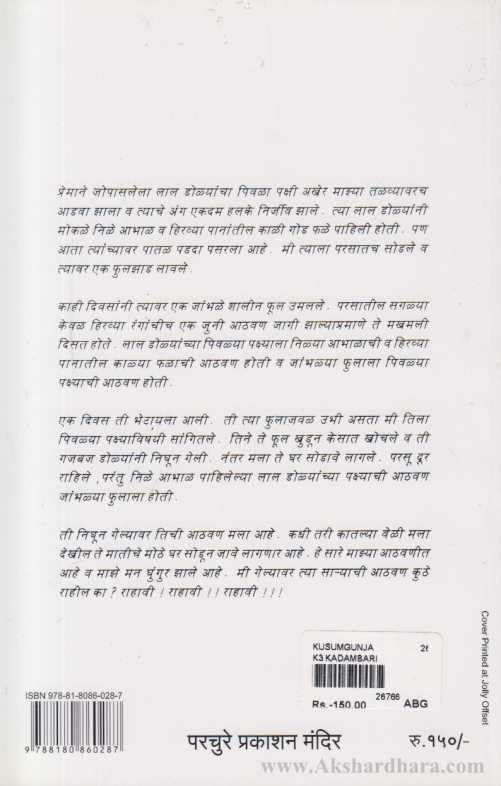 प्रेमाने जोपासलेला लाल डोळ्यांचा पिवळा पक्षी अखेर माझ्या तळव्यावरच
आडवा झाला व त्याचे अंग एकदम हलके निर्जीव झाले. त्या लाल डोळ्यांनी
मोकळे निळे आभाळ व हिरव्या पानांतील काळी गोड फळे पाहिली होती. पण
आता त्यांच्यावर पातळ पडदा पसरला आहे. मी त्याला परसातच सोडले व
त्यावर एक फुलझाड लावले.
काही दिवसांनी त्यावर एक जांभळे शालीन फूल उमलले. परसातील सगळ्या
केवळ हिरव्या रंगांचीच एक जुनी आठवण जागी झाल्याप्रमाणे ते मखमली
दिसत होते. लाल डोळ्यांच्या पिवळ्या पक्ष्याला निळ्या आभाळाची व हिरव्या
पानातील काळ्या फळाची आठवण होती व जांभळ्या फुलाला पिवळ्या
पक्ष्याची आठवण होती.
एक दिवस ती भेटायला आली. ती त्या फुलाजवळ उभी असता मी तिला
पिवळ्या पक्ष्याविषयी सांगितले. तिने ते फूल खुडून केसात खोचले व ती
गजबज डोळ्यांनी निघून गेली. नंतर मला ते घर सोडावे लागले. परसू दूर
राहिले ,परंतु निळे आभाळ पाहिलेल्या लाल डोळ्यांच्या पक्ष्याची आठवण
जांभळ्या फुलाला होती.
ती निघून गेल्यावर तिची आठवण मला आहे. कधी तरी कातल्या वेळी मला
देखील ते मातीचे मोठे घर सोडून जावे लागणार आहे. हे सारे माझ्या आठवणीत
आहे व माझे मन घुंगुर झाले आहे. मी गेल्यावर त्या साऱ्याची आठवण कुठे
राहील का ? राहावी ! राहावी !! राहावी !!!
KUSUMGUNJA 26
K3 KADAMBARI
26766
Rs.-150.00 ABG
Cover Printed at Jolly Offset
ISBN 978-81-8086-028-7
9 788180 860287
परचुरे प्रकाशन मंदिर
रु.१५०/-
www.Akshardhara.com